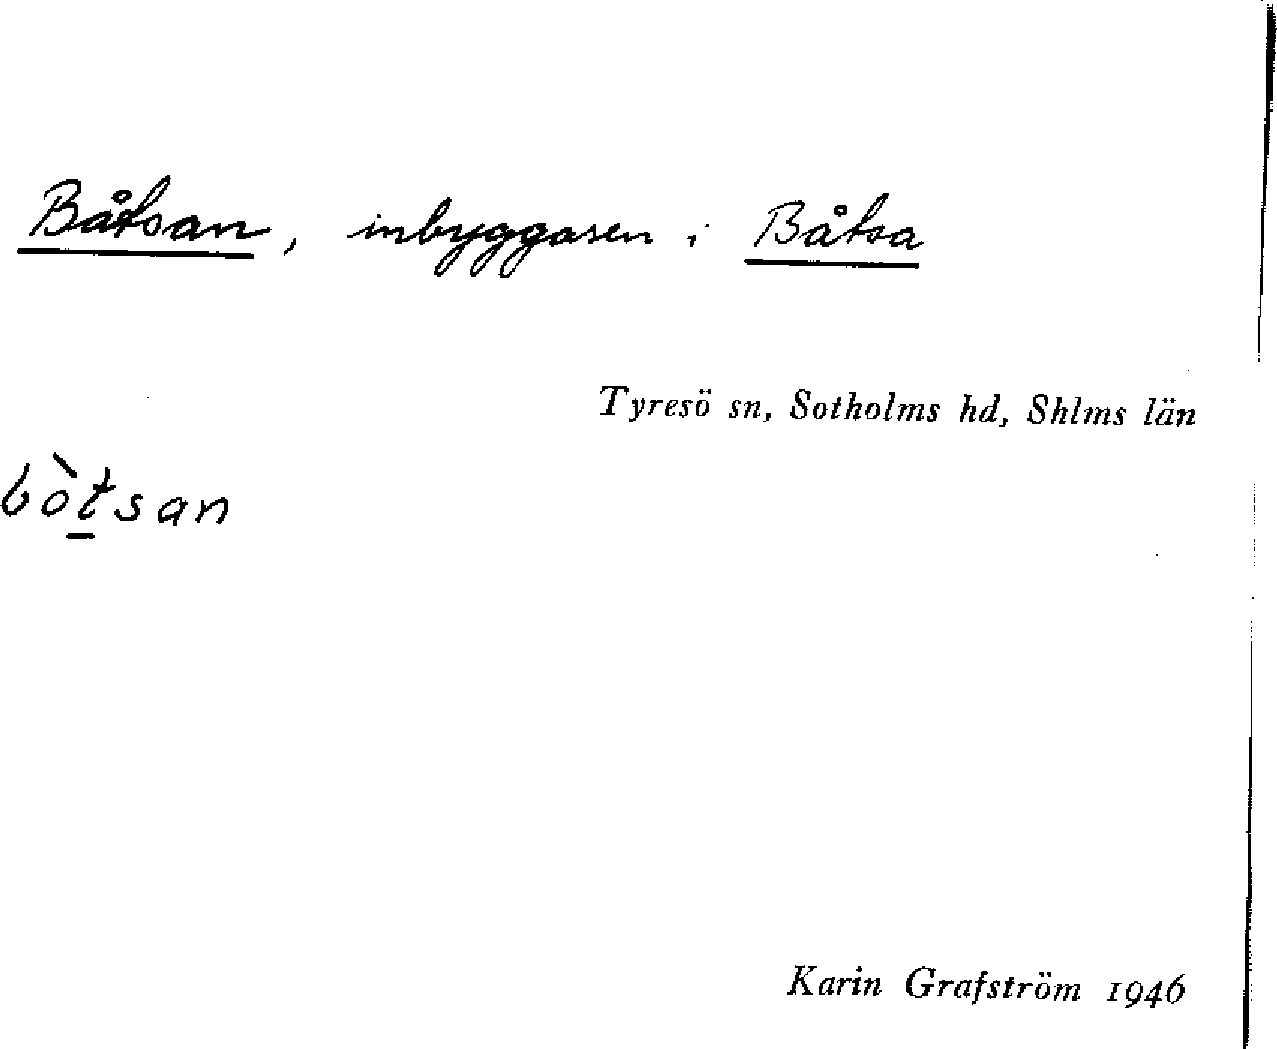 Båtsan, inbyggaren i Båtsa
Tyresö sn, Sotholms hd, Shlms län
bòt̲san
Karin Grafström 1946